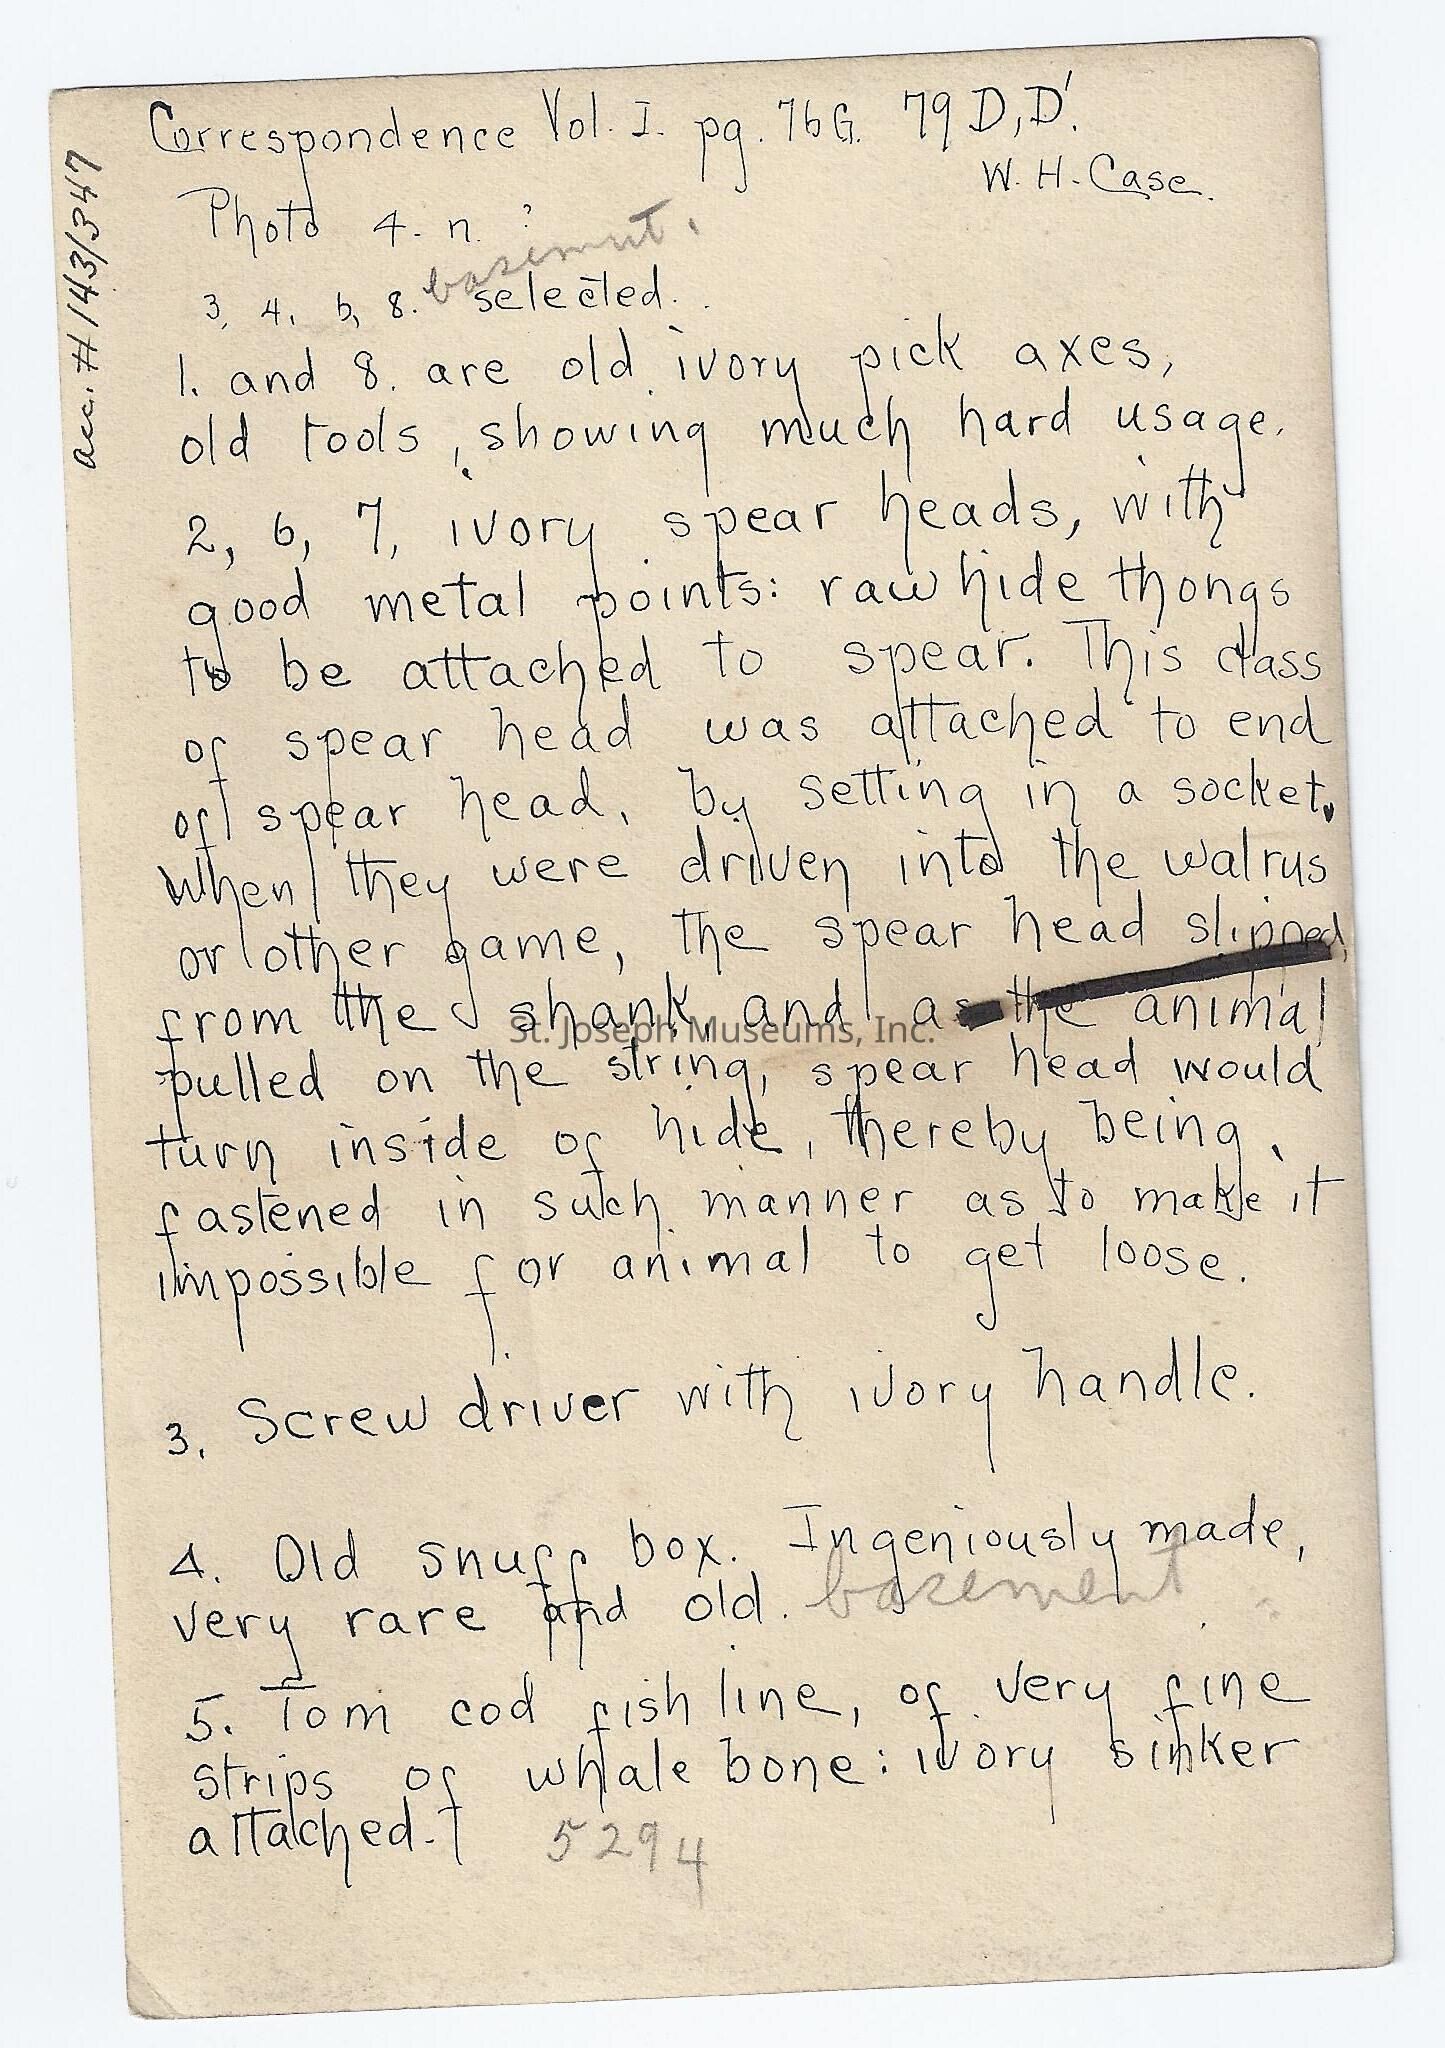 Correspondence Vol. I. pg. 76G. 79 D, D'.
W. H. Case.
acc. # 143/347
Photo 4. n. ?
basement.
3, 4, 6, 8. selected.
1. and 8. are old ivory pick axes,
old tools, showing much hard usage.
2, 6, 7, ivory spear heads, with
good metal points: rawhide thongs
to be attached to spear. This class
of spear head was attached to end
of spear head, by setting in a socket.
When they were driven into the walrus
or other game, the spear head slipped
from the shank, and as the animal
pulled on the string, spear head would
turn inside of hide, thereby being
fastened in such manner as to make it
impossible for animal to get loose.
3. Screw driver with ivory handle.
4. Old snuff box. Ingeniously made,
very rare and old. basement
5. Tom cod fish line, of very fine
strips of whale bone: ivory sinker
attached.
5294
St. Joseph Museums, Inc.